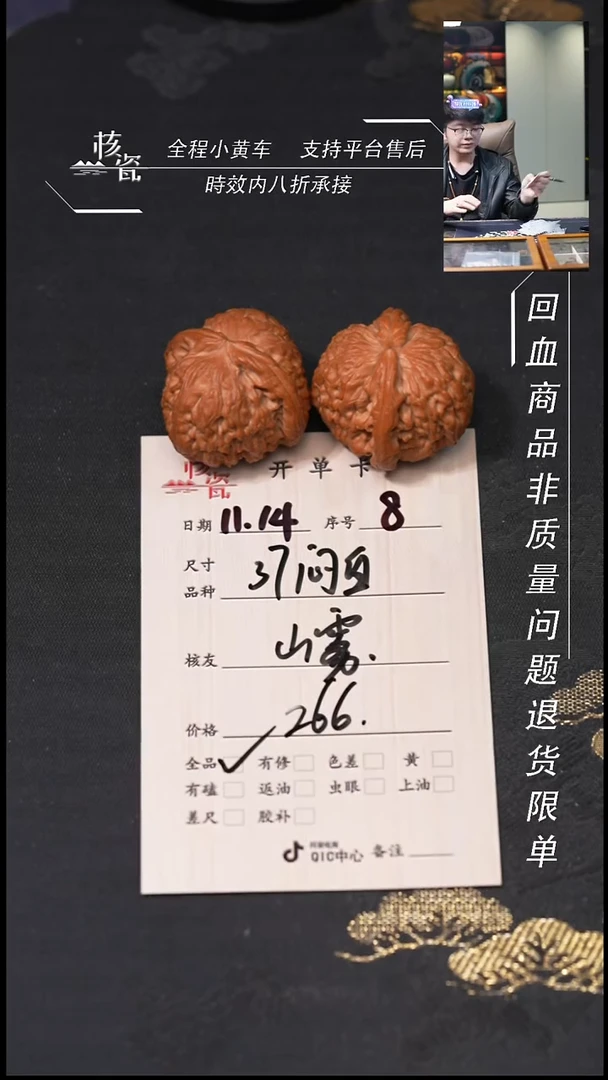 核瓷
全程小黄车 支持平台售后
時效内八折承接
回血商品非质量问题退货限单
核瓷
开单卡
日期 11.14 序号 8
尺寸
品种 37闷豆
核友 山雾.
价格 266.
全品 有修 色差 黄
有磕 返油 虫眼 上油
差尺 胶补
QIC中心 备注